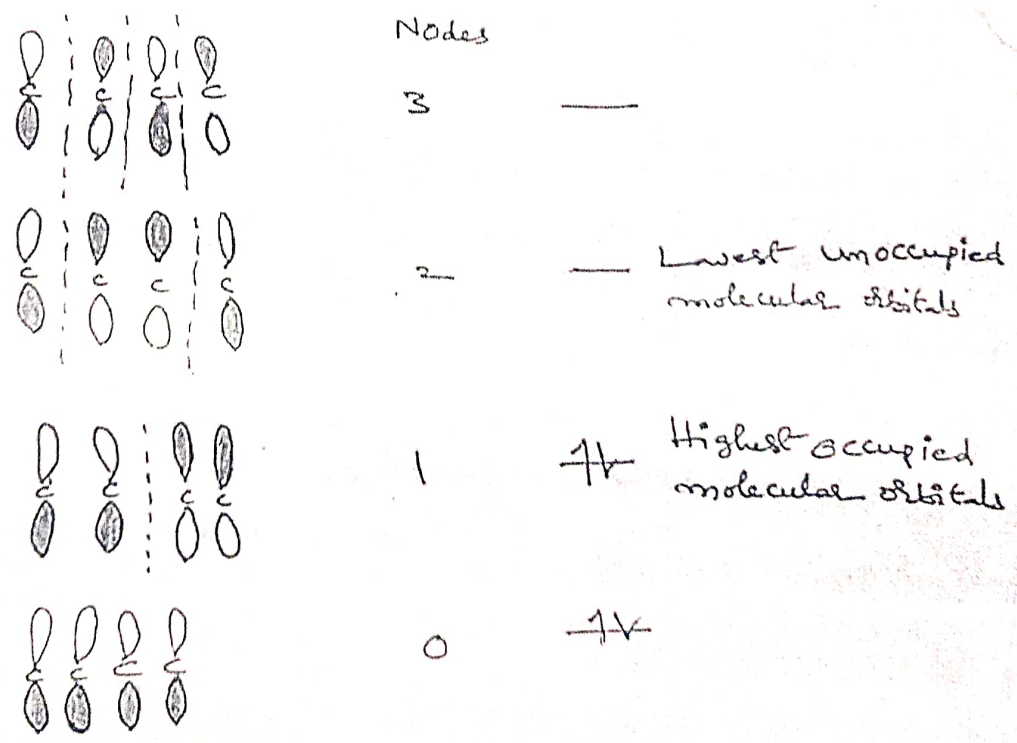 Nodes
C C C C 3
C C C C 2 Lowest unoccupied
molecular orbitals
C C C C 1 Highest occupied
molecular orbitals
C C C C 0